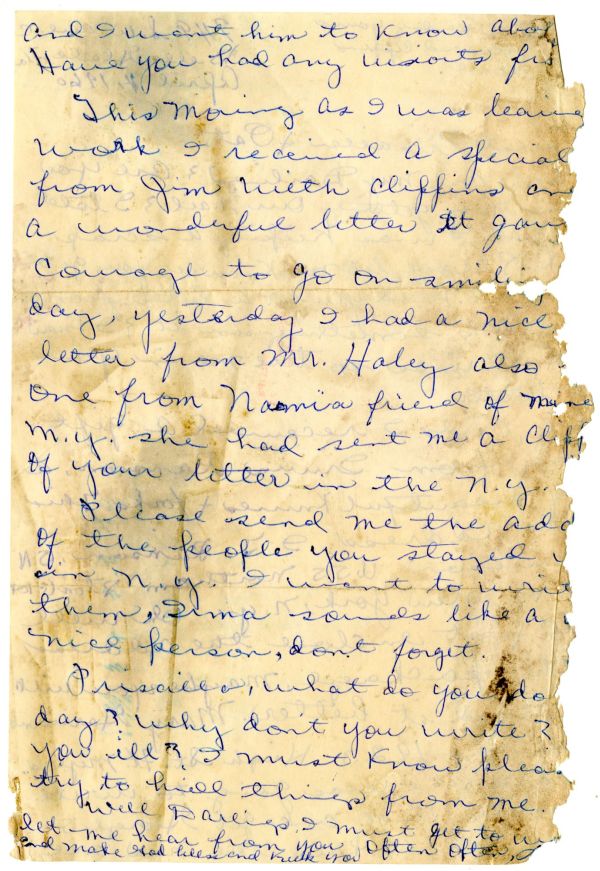 and I want him to know abo
Have you had any visiorts fro
This Moring as I was leavin
work I received a special
from Jim Nieth cliffins an
a wonderful letter It gav
Courage to go on smiling
day, yesterday I had a nice
letter from Mr. Haley also
one from Naomi a friend of mine
N.Y. she had sent me a cliff
of your letter in the N.Y.
Please send me the add
of the people you stayed w
in N.Y. I want to writ
them, Irma sounds like a
nice person, don't forget.
Priscilla, what do you do
day? why don't you write?
you ill? I must know pleas
try to hide things from me.
Well Darlings, I must get to w
let me hear from you often often,
and make God bless and keep you